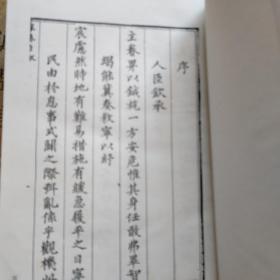 序
人臣欽承
主眷畀以鉞統一方安危惟其身任敢弗單智
竭能冀奏敉寧以紓
宸慮然時地有難易措施有緩急承平之日寧
民由於息事式闢之際弭亂係乎觀機此